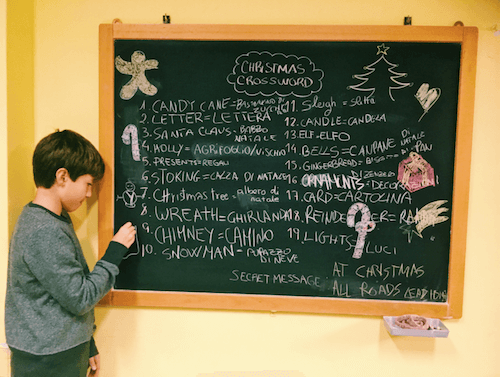 CHRISTMAS
CROSSWORD
1. CANDY CANE = BASTONCINO DI
ZUCCHERO
2. LETTER = LETTERA
3. SANTA CLAUS = BABBO
NATALE
4. HOLLY = AGRIFOGLIO/VISCHIO
5. PRESENTS = REGALI
6. STOKING = CALZA DI NATALE
7. Christmas tree = albero di
natale
8. WREATH = GHIRLANDA
9. CHIMNEY = CAMINO
10. SNOWMAN = PUPAZZO
DI NEVE
11. Sleigh = Slitta
12. CANDLE = CANDELA
13. ELF = ELFO
14. BELLS = CAMPANE DI
NATALE
15. GINGERBREAD =
DI ZENZERO
16. ORNAMENTS = DECORAZIONI
17. CARD = CARTOLINA
18. REINDEER =
19. LIGHTS LUCI
SECRET MESSAGE
AT CHRISTMAS
ALL ROADS LEAD